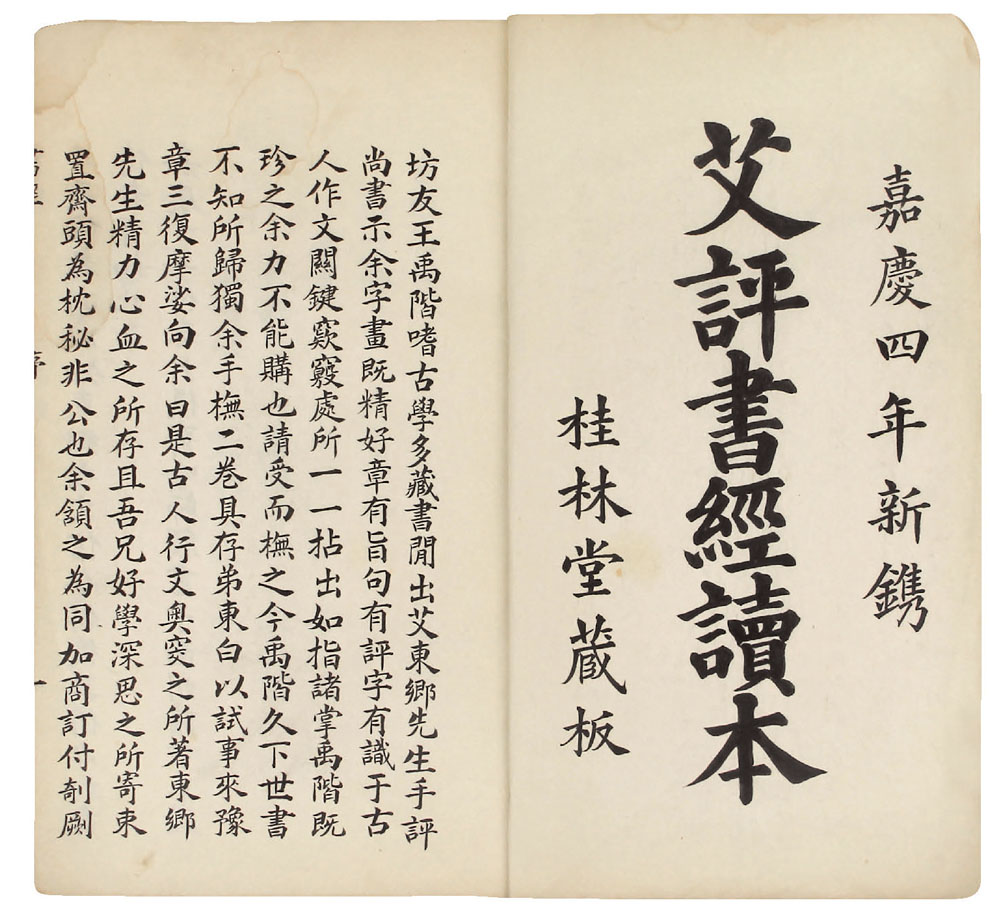 嘉慶四年新鐫
艾評書經讀本
桂林堂蔵板
坊友王禹階嗜古學多藏書閒出艾東鄉先生手評
尚書示余字畫既精好章有旨句有評字有識于古
人作文關鍵窾竅處所一一拈出如指諸掌禹階既
珍之余力不能購也請受而橅之今禹階久下世書
不知所歸獨余手橅二巻具存弟東白以試事來豫
章三復摩娑向余曰是古人行文奧窔之所著東鄉
先生精力心血之所存且吾兄好學深思之所寄東
置齋頭為枕秘非公也余頷之為同加商訂付剞劂
序 一